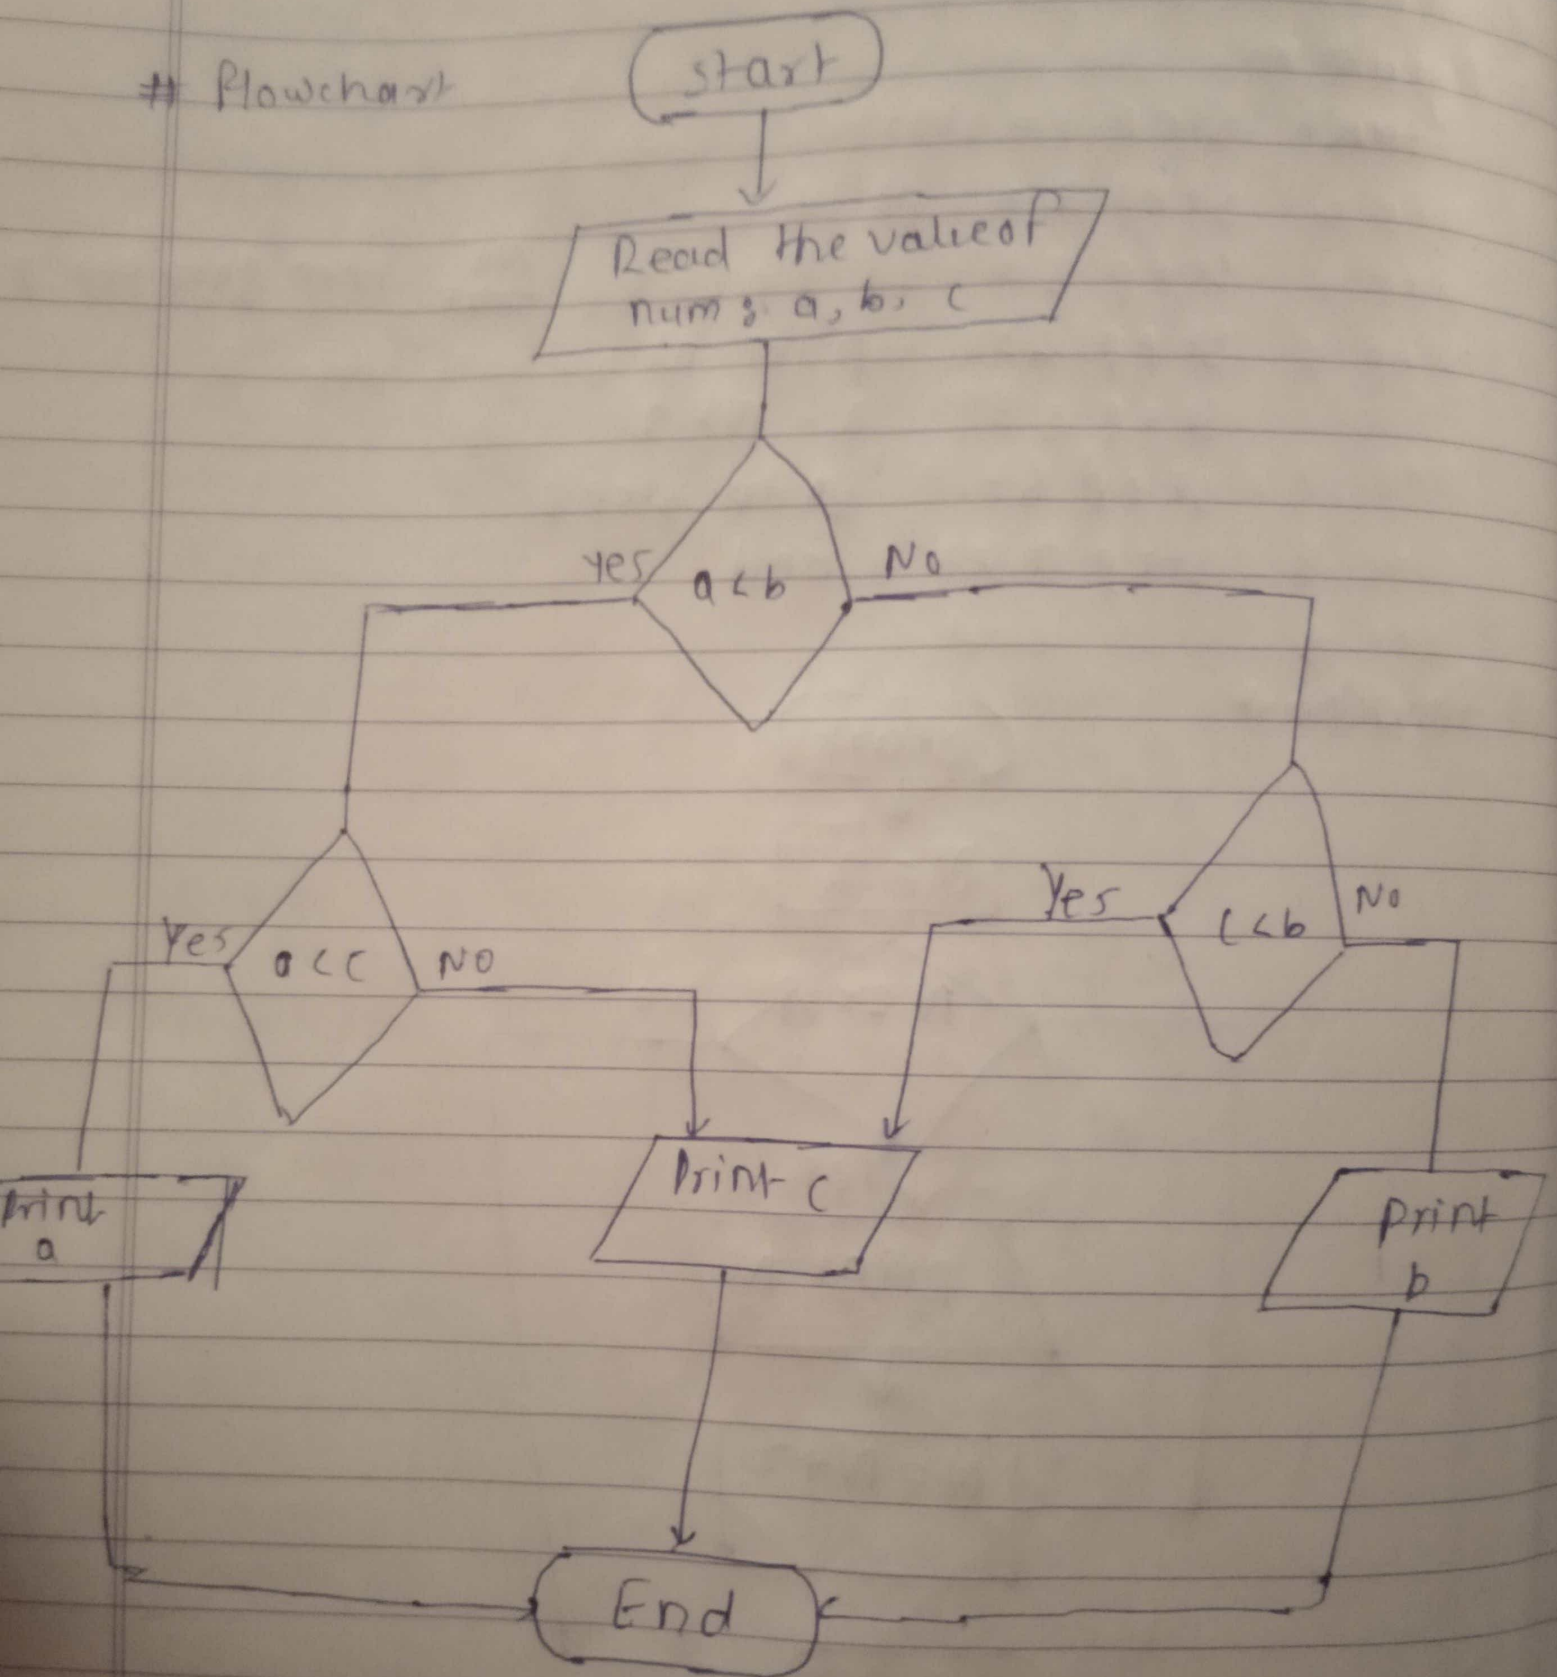 # Flowchart
start
Read the value of
nums a, b, c
Yes
a < b
No
Yes
a < c
NO
Yes
c < b
No
Print
a
Print c
Print
b
End